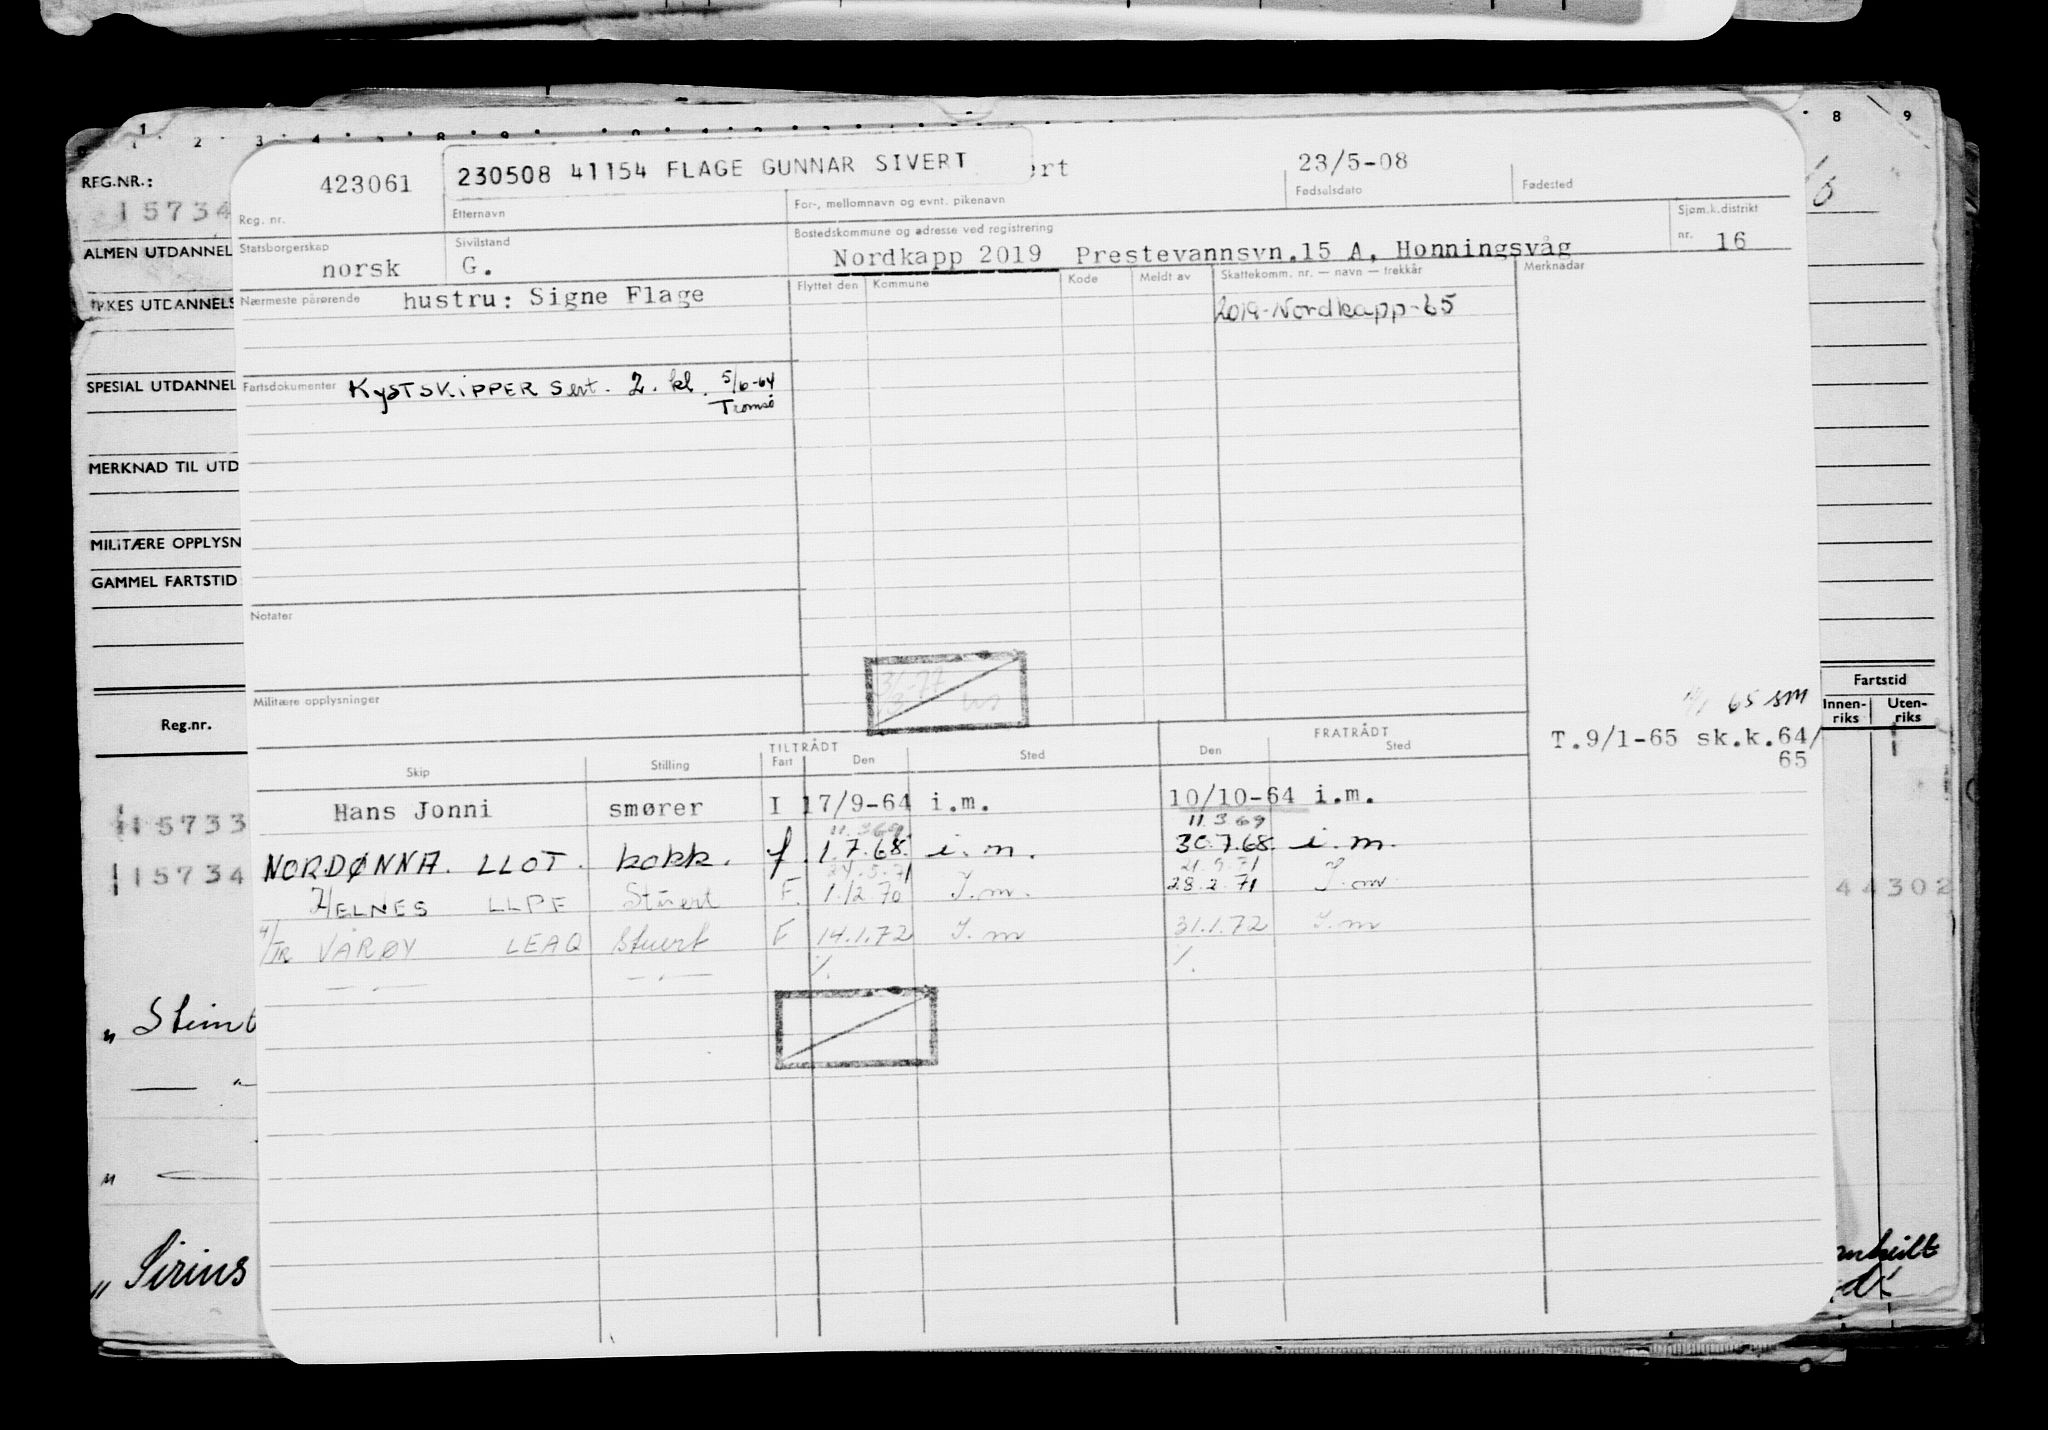 1 2 3 4 8 9
REG.NR.:
15734
ALMEN UTDANNEL
YRKES UTDANNELS
SPESIAL UTDANNEL
MERKNAD TIL UTD
MILITÆRE OPPLYSN
GAMMEL FARTSTID
Reg.nr.
15733
15734
„ Sirius
Fartstid
Innen-riks Uten-riks
44302
423061 230508 41154 FLAGE GUNNAR SIVERT ert 23/5-08
Reg. nr. Etternavn For-, mellomnavn og evnt. pikenavn Fødselsdato Fødested
Statsborgerskap Sivilstand Bostedskommune og adresse ved registrering Sjøm.k.distrikt
norsk G. Nordkapp 2019 Prestevannsvn.15 A, Honningsvåg nr. 16
Nærmeste pårørende hustru: Signe Flage Flyttet den Kommune Kode Meldt av Skattekomm. nr. — navn — trekkår Merknader
2019-Nordkapp-65
Fartsdokumenter KYSTSKIPPER Sert. 2. kl. 5/6-64
Tromsø
Notater
31/3-77
Militære opplysninger
65 SM
T.9/1-65 sk.k.64/
65
TILTRÅDT FRATRÅDT
Skip Stilling Fart Den Sted Den Sted
Hans Jonni smører I 17/9-64 i.m. 10/10-64 i.m.
11.3.69. 11.3.69
NORDØNNA. LLOT. kokk. f. 1.7.68. i.m. 30.7.68. i.m.
24.5.71 21.9.71
HELNES LLPE Stuert F. 1.12.70 I.m. 28.2.71 I.m.
M/TR VÅRØY LEAQ Stuert F 14.1.72 I.m 31.1.72 I.m
— „ — — „ — %. %.